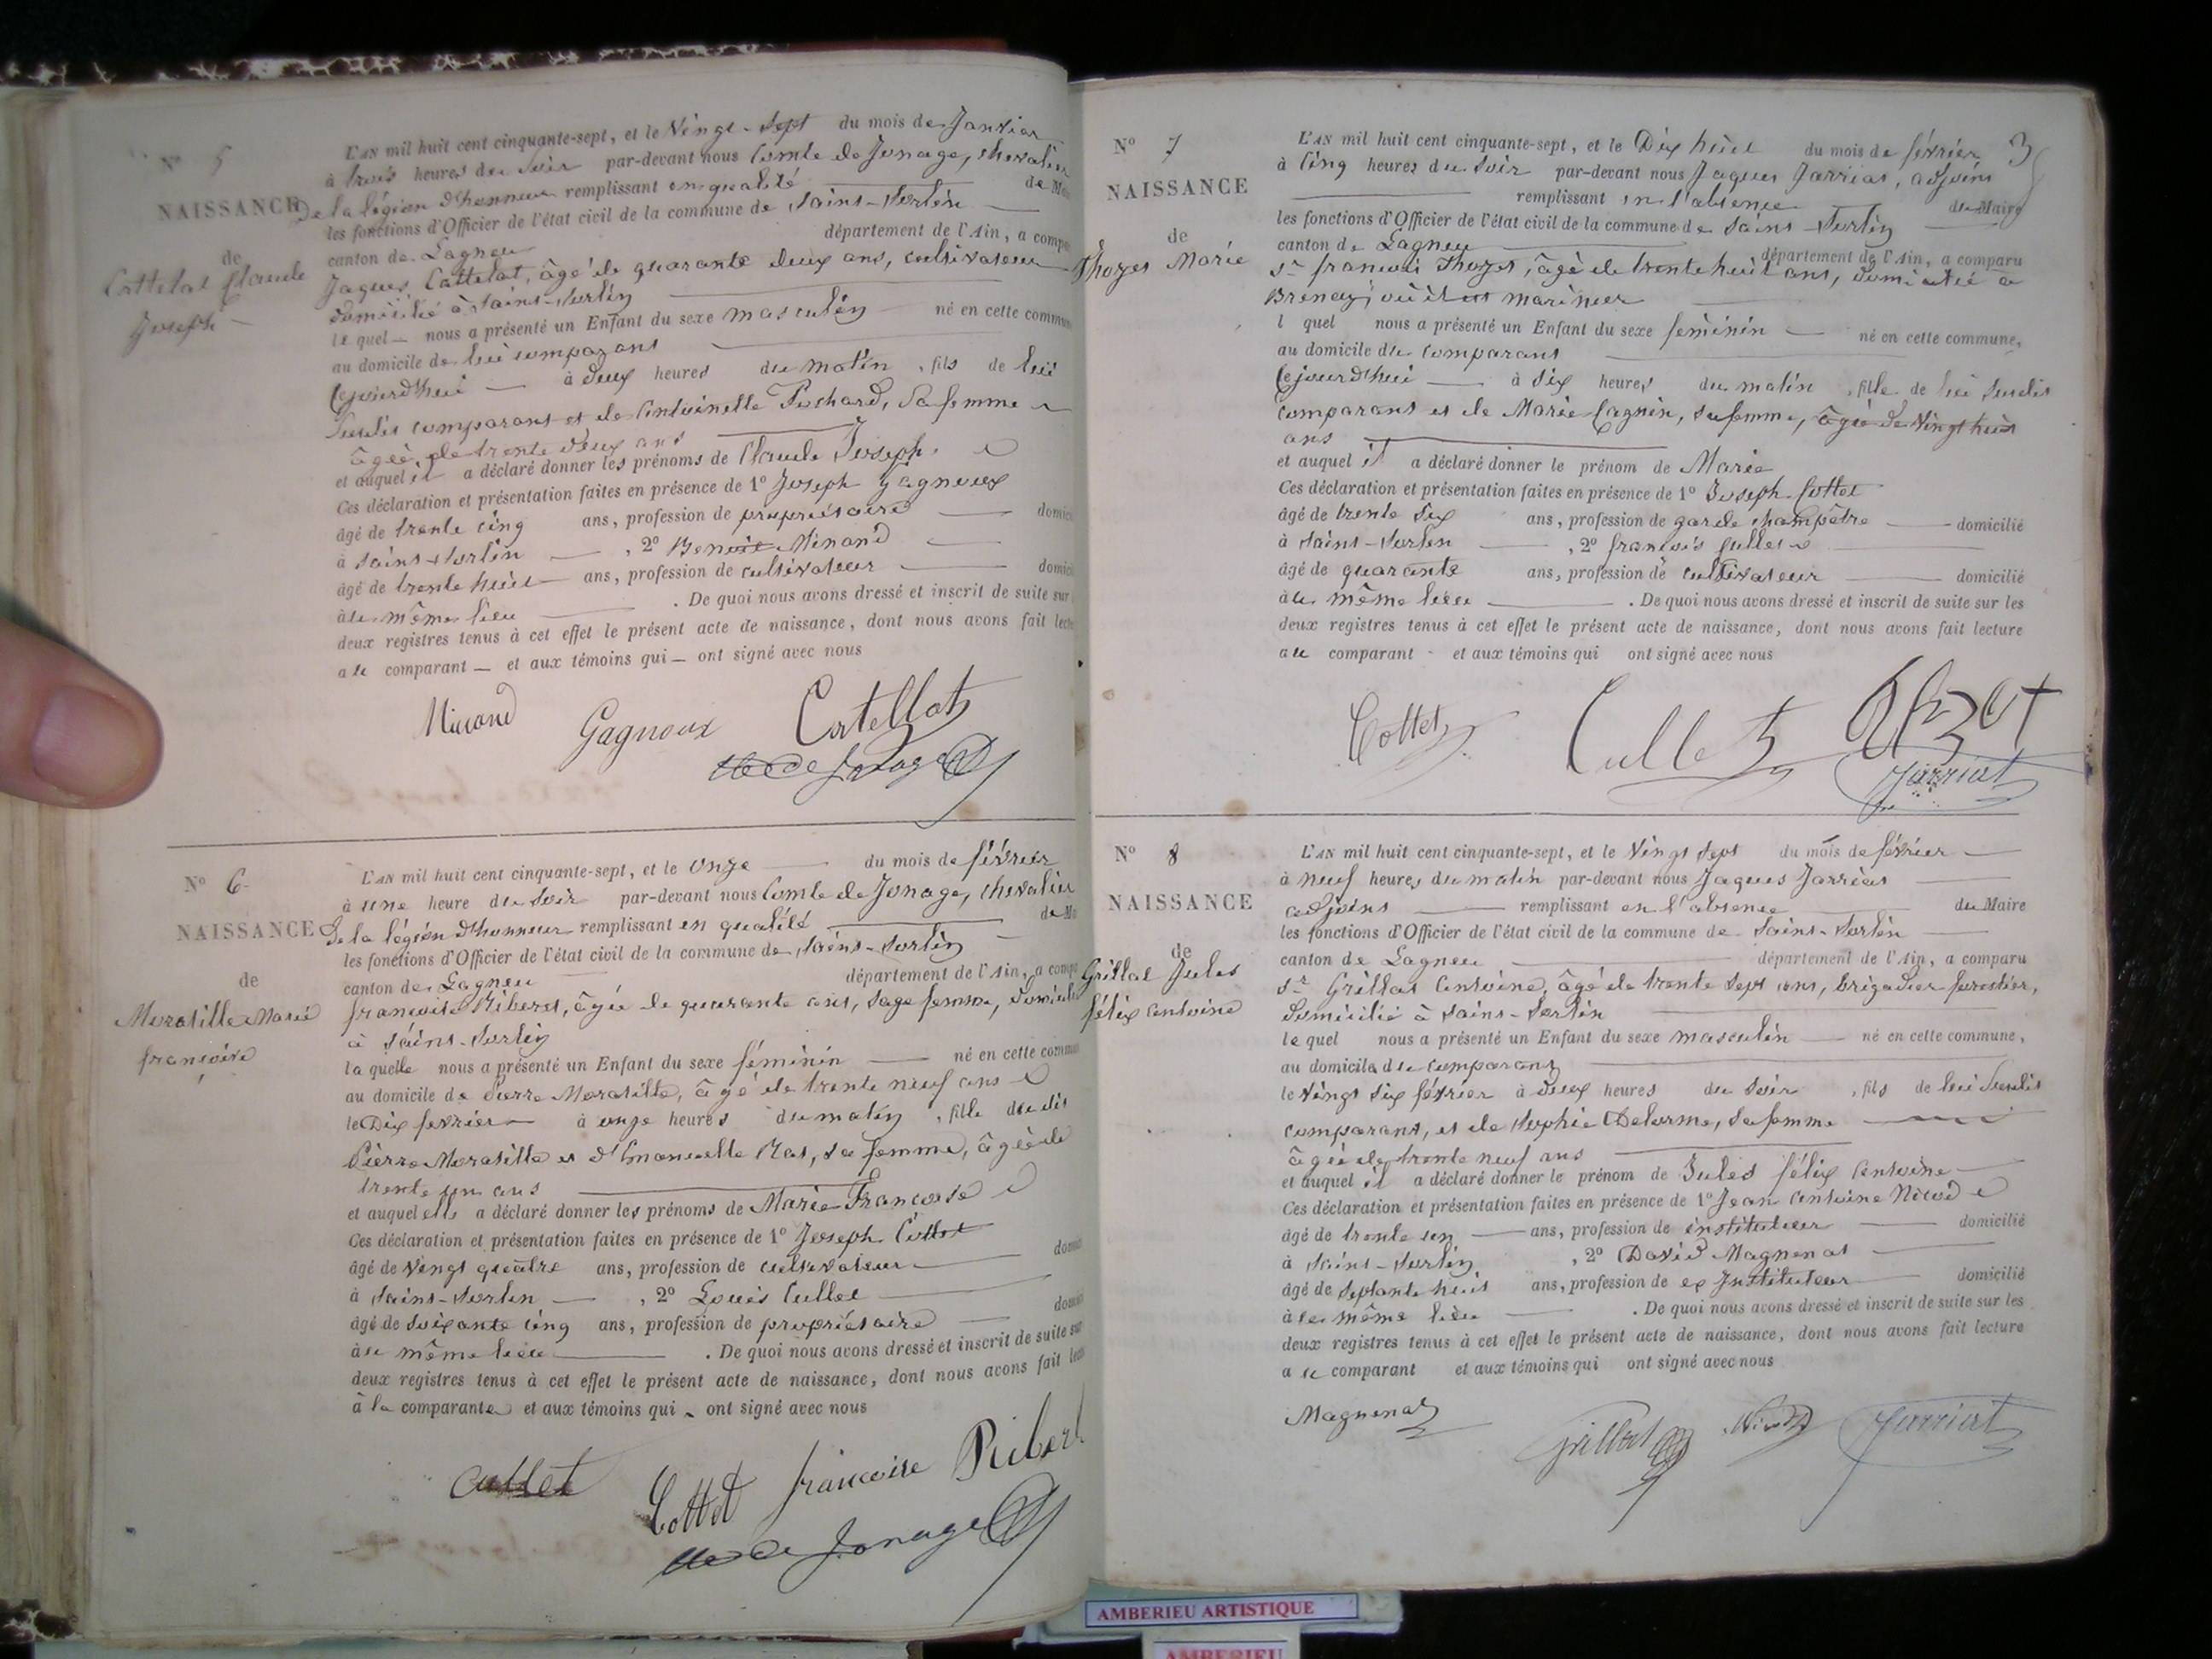 N° 5
NAISSANCE
de
Cattelat Claude
Joseph
L'AN mil huit cent cinquante-sept, et le Vingt-Sept du mois de Janvier
à trois heures du soir par-devant nous Comte de Jonage, chevalier
de la légion d'honneur remplissant en qualité de Ma
les fonctions d'Officier de l'état civil de la commune de Saint-Sorlin
canton de Lagneu département de l'Ain, a compa
Jaques Cattelat, âgé de quarante deux ans, cultivateur
domicilié à Saint-Sorlin
le quel nous a présenté un Enfant du sexe masculin né en cette commun
au domicile de lui comparant
Cejourd'hui à deux heures du matin, fils de lui
susdit comparant et de Antoinette Pochard, sa femme
âgée de trente deux ans
et auquel il a déclaré donner les prénoms de Claude Joseph
Ces déclaration et présentation faites en présence de 1° Joseph Gagneux
âgé de trente cinq ans, profession de propriétaire domici
à Saint-Sorlin, 2° Benoit Minand
âgé de trente huit ans, profession de cultivateur domici
à le même lieu. De quoi nous avons dressé et inscrit de suite sur
deux registres tenus à cet effet le présent acte de naissance, dont nous avons fait lectu
au comparant et aux témoins qui ont signé avec nous
Minand Gagnoux Cattellat
de Jonage
N° 6
NAISSANCE
de
Moratille Marie
françoise
L'AN mil huit cent cinquante-sept, et le onze du mois de février
à une heure du soir par-devant nous Comte de Jonage, chevalier
de la légion d'honneur remplissant en qualité de Ma
les fonctions d'Officier de l'état civil de la commune de Saint-Sorlin
canton de Lagneu département de l'Ain, a compa
françoise Riberet, âgée de quarante ans, sage femme, domiciliée
à Saint-Sorlin
la quelle nous a présenté un Enfant du sexe féminin né en cette commun
au domicile de Pierre Moratille, âgé de trente neuf ans
le Dix fevrier à onze heures du matin, fille du dit
Pierre Moratille et d'Emanuelle Ras, sa femme, âgée de
trente un ans
et auquel elle a déclaré donner les prénoms de Marie Françoise
Ces déclaration et présentation faites en présence de 1° Joseph Cottet
âgé de vingt quatre ans, profession de cultivateur domici
à Saint-Sorlin, 2° Louis Cullet
âgé de soixante cinq ans, profession de propriétaire domici
à le même lieu. De quoi nous avons dressé et inscrit de suite sur
deux registres tenus à cet effet le présent acte de naissance, dont nous avons fait lectu
à la comparante et aux témoins qui ont signé avec nous
Cullet Cottet francoise Riber
de Jonage
3
N° 7
NAISSANCE
de
Thozet Marie
L'AN mil huit cent cinquante-sept, et le Dix huit du mois de février
à cinq heures du soir par-devant nous Jaques Jarriat, adjoint
remplissant en l'absence du Maire
les fonctions d'Officier de l'état civil de la commune de Saint-Sorlin
canton de Lagneu département de l'Ain, a comparu
Sr françois Thozet, âgé de trente huit ans, domicilié à
où il est marinier
l quel nous a présenté un Enfant du sexe féminin né en cette commune,
au domicile du comparant
Cejourd'hui à six heures du matin, fille de lui susdit
comparant et de Marie Cagnin, sa femme, âgée de vingt huit
ans
et auquel il a déclaré donner le prénom de Marie
Ces déclaration et présentation faites en présence de 1° Joseph Cottet
âgé de trente six ans, profession de garde champêtre domicilié
à Saint-Sorlin, 2° françois Cullet
âgé de quarante ans, profession de cultivateur domicilié
à le même lieu. De quoi nous avons dressé et inscrit de suite sur les
deux registres tenus à cet effet le présent acte de naissance, dont nous avons fait lecture
au comparant et aux témoins qui ont signé avec nous
Cottet Cullet
Jarriat
N° 8
NAISSANCE
de
Grillat Jules
félix Antoine
L'AN mil huit cent cinquante-sept, et le Vingt Sept du mois de février
à neuf heures du matin par-devant nous Jaques Jarriat
adjoint remplissant en l'absence du Maire
les fonctions d'Officier de l'état civil de la commune de Saint-Sorlin
canton de Lagneu département de l'Ain, a comparu
Sr Grillat Antoine, âgé de trente sept ans, brigadier forestier,
domicilié à Saint-Sorlin
le quel nous a présenté un Enfant du sexe masculin né en cette commune,
au domicile du comparant
le vingt six février à deux heures du soir, fils de lui susdit
comparant, et de Sophie Delorme, sa femme
âgée de trente neuf ans
et auquel il a déclaré donner le prénom de Jules félix Antoine
Ces déclaration et présentation faites en présence de 1° Jean Antoine Nicod
âgé de trente un ans, profession de instituteur domicilié
à Saint-Sorlin, 2° David Magnenat
âgé de septante huit ans, profession de ex Instituteur domicilié
à le même lieu. De quoi nous avons dressé et inscrit de suite sur les
deux registres tenus à cet effet le présent acte de naissance, dont nous avons fait lecture
au comparant et aux témoins qui ont signé avec nous
Magnenat Grillat Nicod Jarriat
AMBERIEU ARTISTIQUE
AMBERIEU